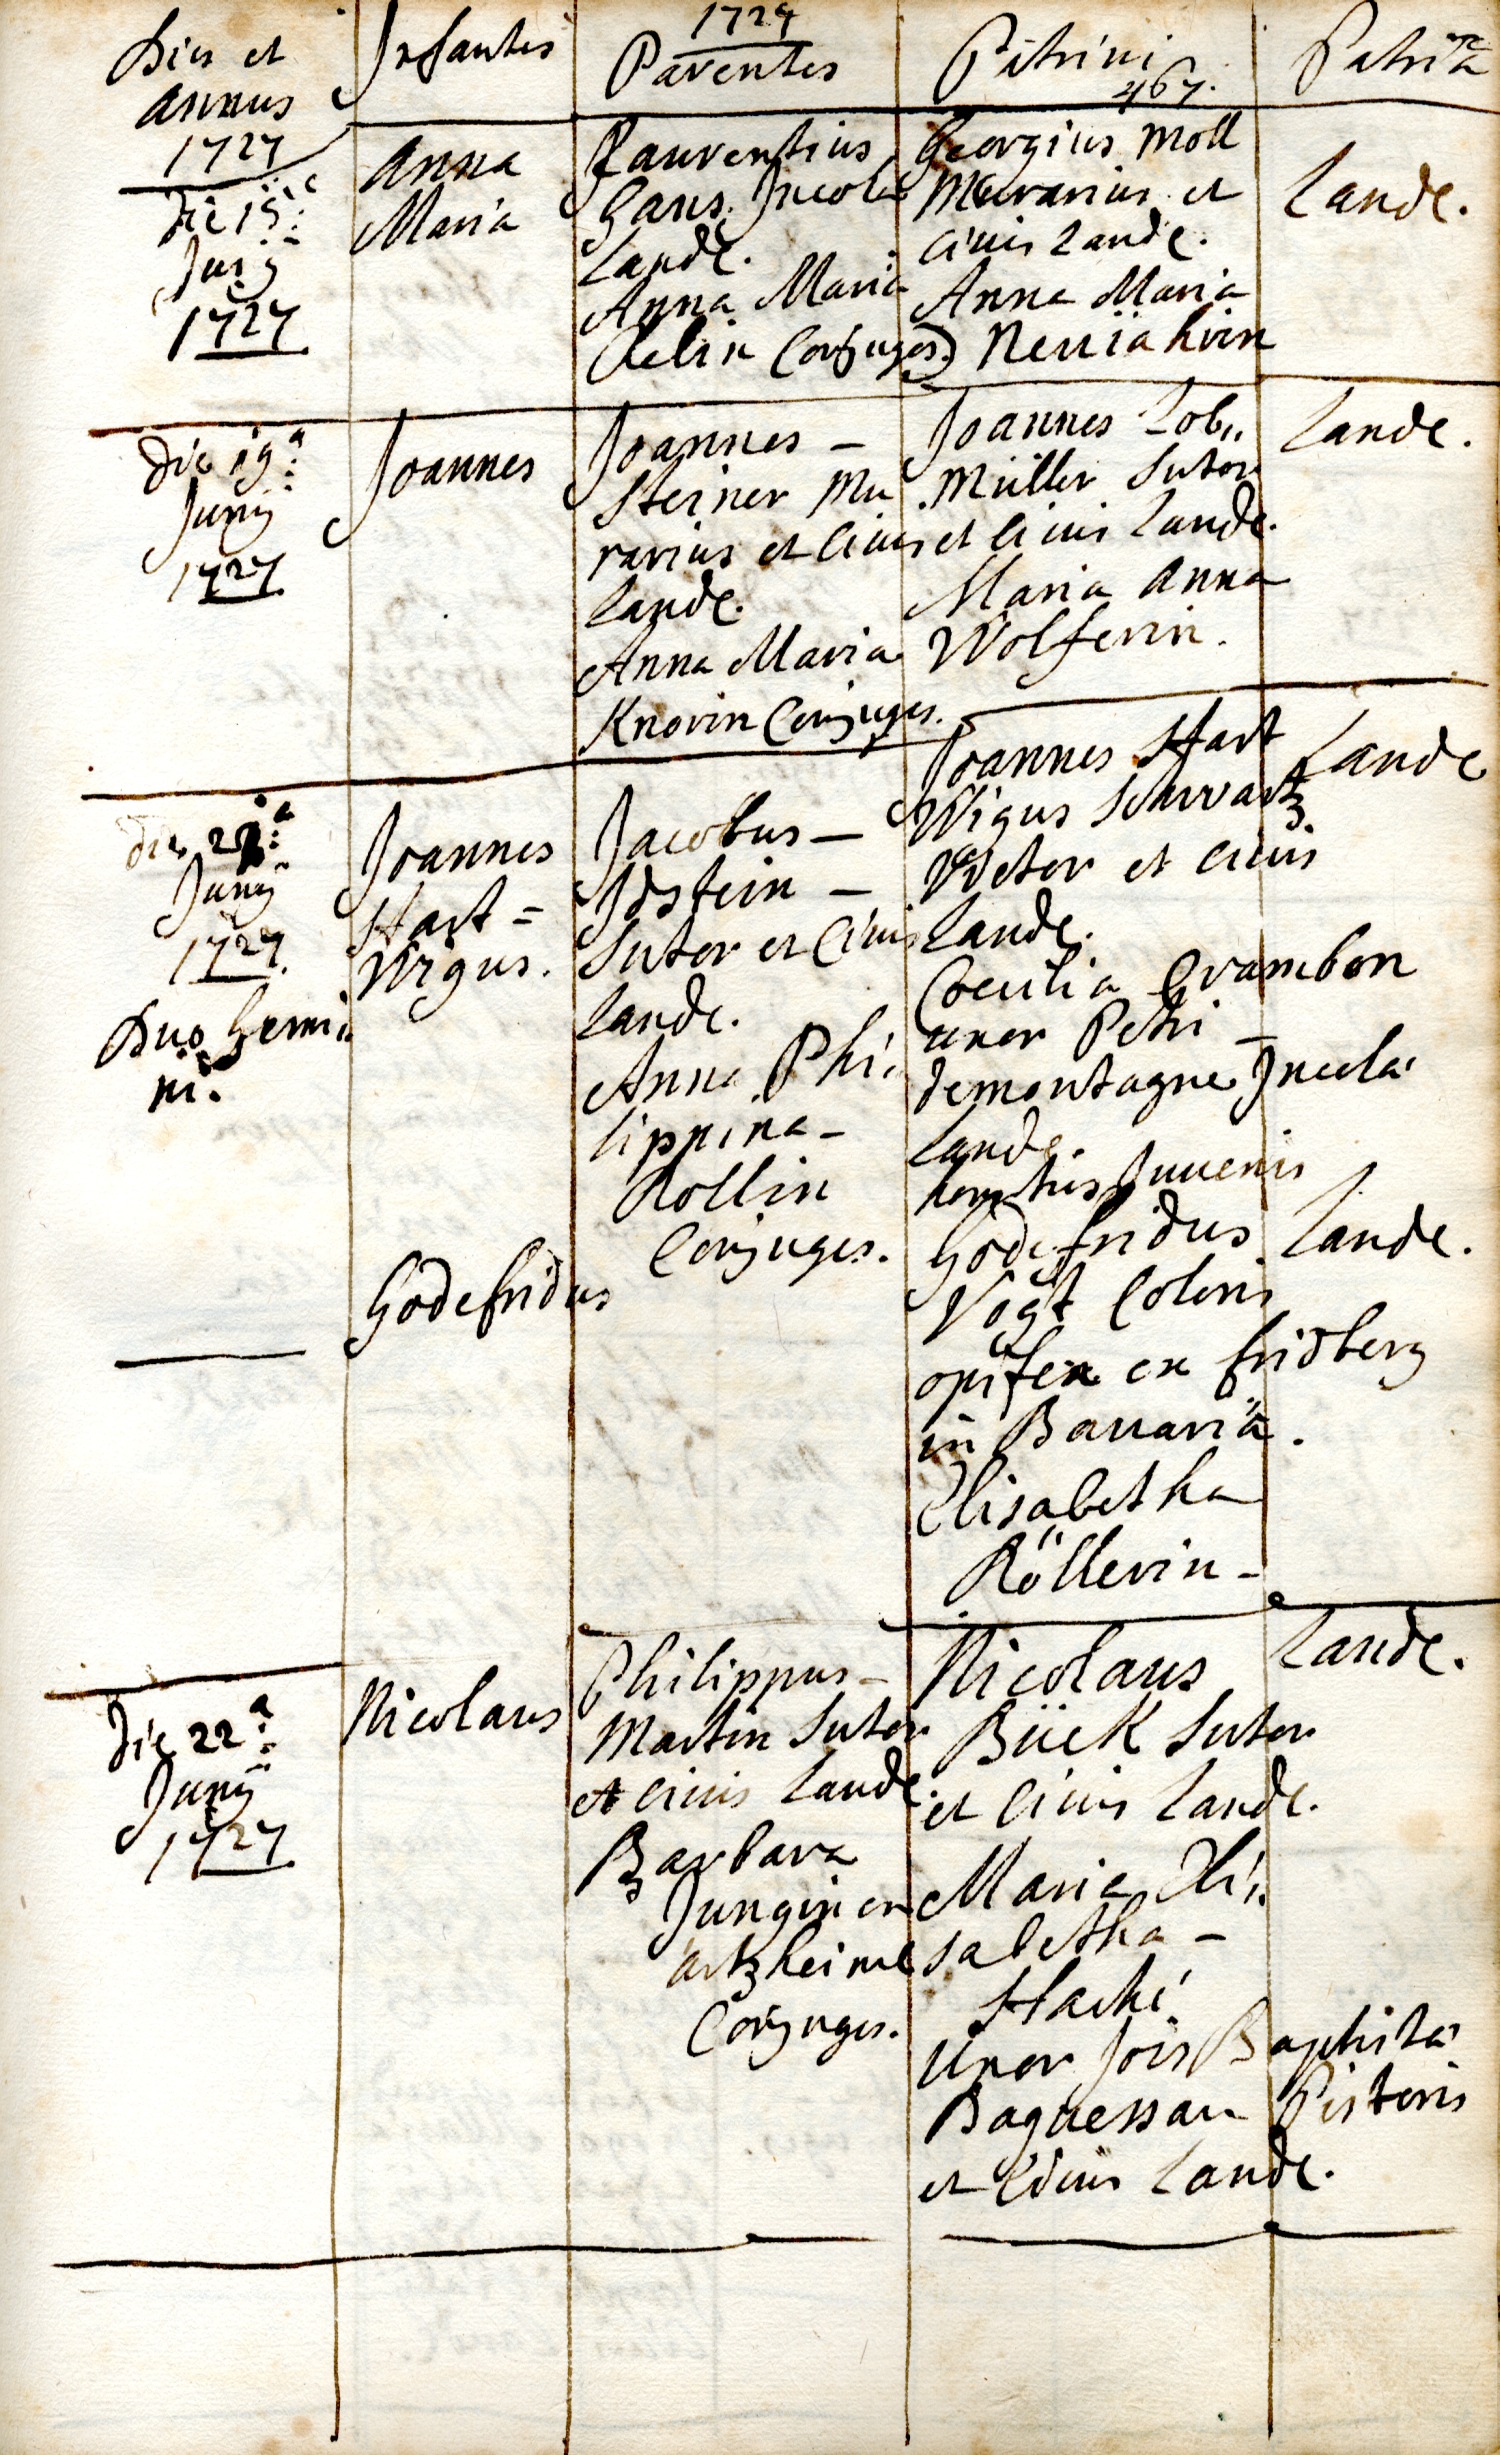 Dies et
annus
1727
Infantes
1727
Parentes
Patrini
467.
Patria
Die 15:
Junÿ
1727
Anna
Maria
Laurentius
Gans Incola
Landę.
Anna Maria
Conjuges
Georgius Moll
Murarius et
civis Landę.
Anna Maria
Landę.
Die 19:a
Junÿ
1727
Joannes
Joannes –
Steiner Mu
rarius et Civis
Landę.
Anna Maria
Knorin Conjuges.
Joannes Lob„
Müller Sutor
et civis Landę.
Maria Anna
Wolferin.
Landę.
Die
Junÿ
1727.
Duo Gemi„
ni.
Joannes
Hart=
Wigus.
Jacobus –
Idstein –
Sutor et Civis
Landę.
Anna Phi„
lippina –
Rollin
Conjuges.
Joannes Hart
Wigus Schwartz
Viëtor et civis
Landę.
Coecilia Crambon
uxor Petri –
demontagne Incolæ
Landę.
Landę
Godefridus
honestus Juvenis
Godefridus
Vogt Coloris
opifex ex fridberg
in Bavariâ.
Elisabetha
Röllerin –
Landę.
Die 22:a
Junÿ
1727
Nicolaus
Philippus –
Martin Sutor
et civis Landę.
Barbara
Jungin ex
artzheim
Conjuges.
Nicolaus
Bück Sutor
et Civis Landę.
Maria Eli„
sabetha –
Hacki
Uxor Jois Baptistæ
Baguessau Pistoris
et Civis Landę.
Landę.